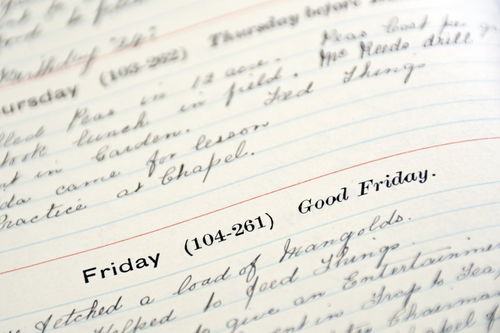 Birthday "24"
ursday (103-262) Thursday before
lled Peas in 12 acre. Peas Cost pe
took lunch in field. Mc Reeds drill
at in Garden. Fed Things
da came for lesson
Practice at Chapel.
Friday (104-261) Good Friday.
fetched a load of Mangolds.
Helped to feed Things.
to give an Entertainme
ent in Trap to Tea
Chairman